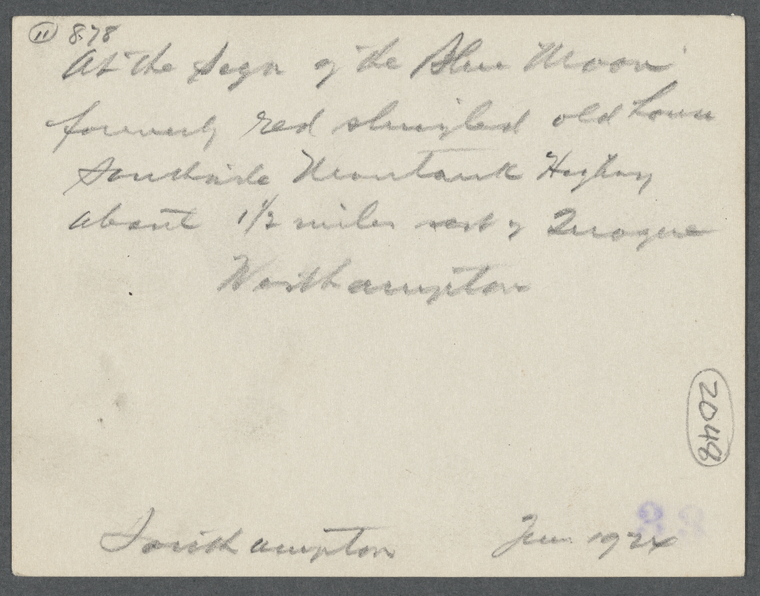 11 878
At the Sign of the Blue Moon
formerly red shingled old house
Southside Montauk Highway
about 1 1/2 miles west of Quogue
Westhampton
2048
Southampton June 1924